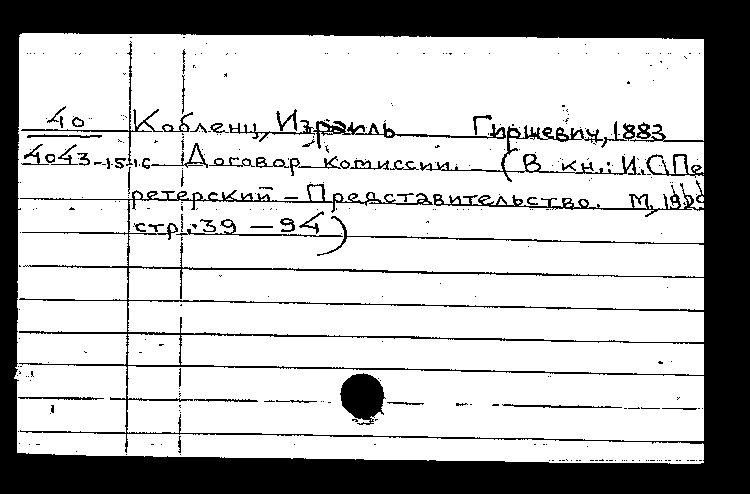 40 Кобленц, Израиль Гиршевич, 1883
4043-15-16 Договор комиссии. (В кн.: И.С. Пе
ретерский – Представительство. М, 1929
стр.: 39 – 94)